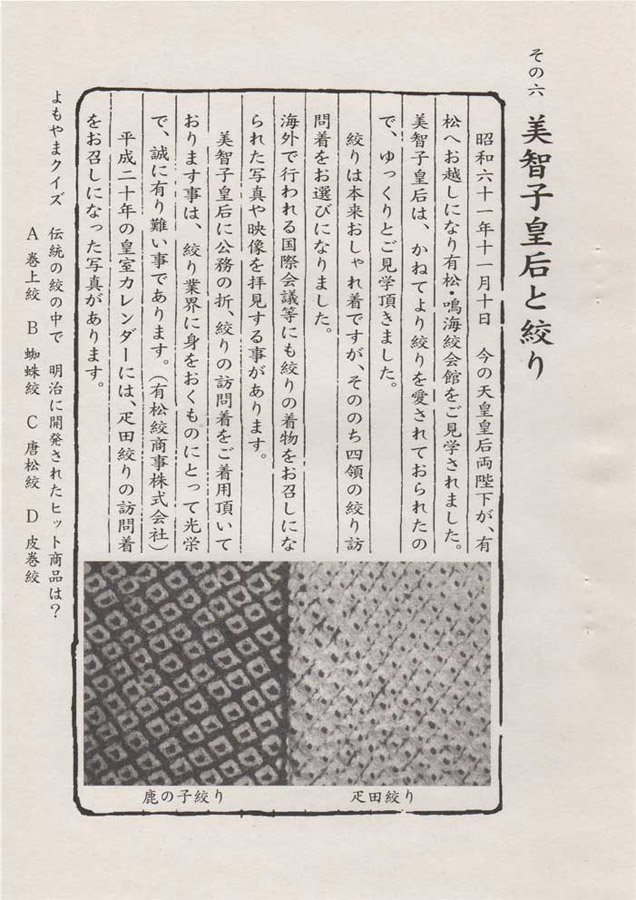 その六　美智子皇后と絞り
昭和六十一年十一月十日　今の天皇皇后両陛下が、有
松へお越しになり有松・鳴海絞会館をご見学されました。
美智子皇后は、かねてより絞りを愛されておられたの
で、ゆっくりとご見学頂きました。
絞りは本来おしゃれ着ですが、そののち四領の絞り訪
問着をお選びになりました。
海外で行われる国際会議等にも絞りの着物をお召しにな
られた写真や映像を拝見する事があります。
美智子皇后に公務の折、絞りの訪問着をご着用頂いて
おります事は、絞り業界に身をおくものにとって光栄
で、誠に有り難い事であります。（有松絞商事株式会社）
平成二十年の皇室カレンダーには、疋田絞りの訪問着
をお召しになった写真があります。
疋田絞り
鹿の子絞り
よもやまクイズ　伝統の絞の中で　明治に開発されたヒット商品は？
A 巻上絞　B 蜘蛛絞　C 唐松絞　D 皮巻絞